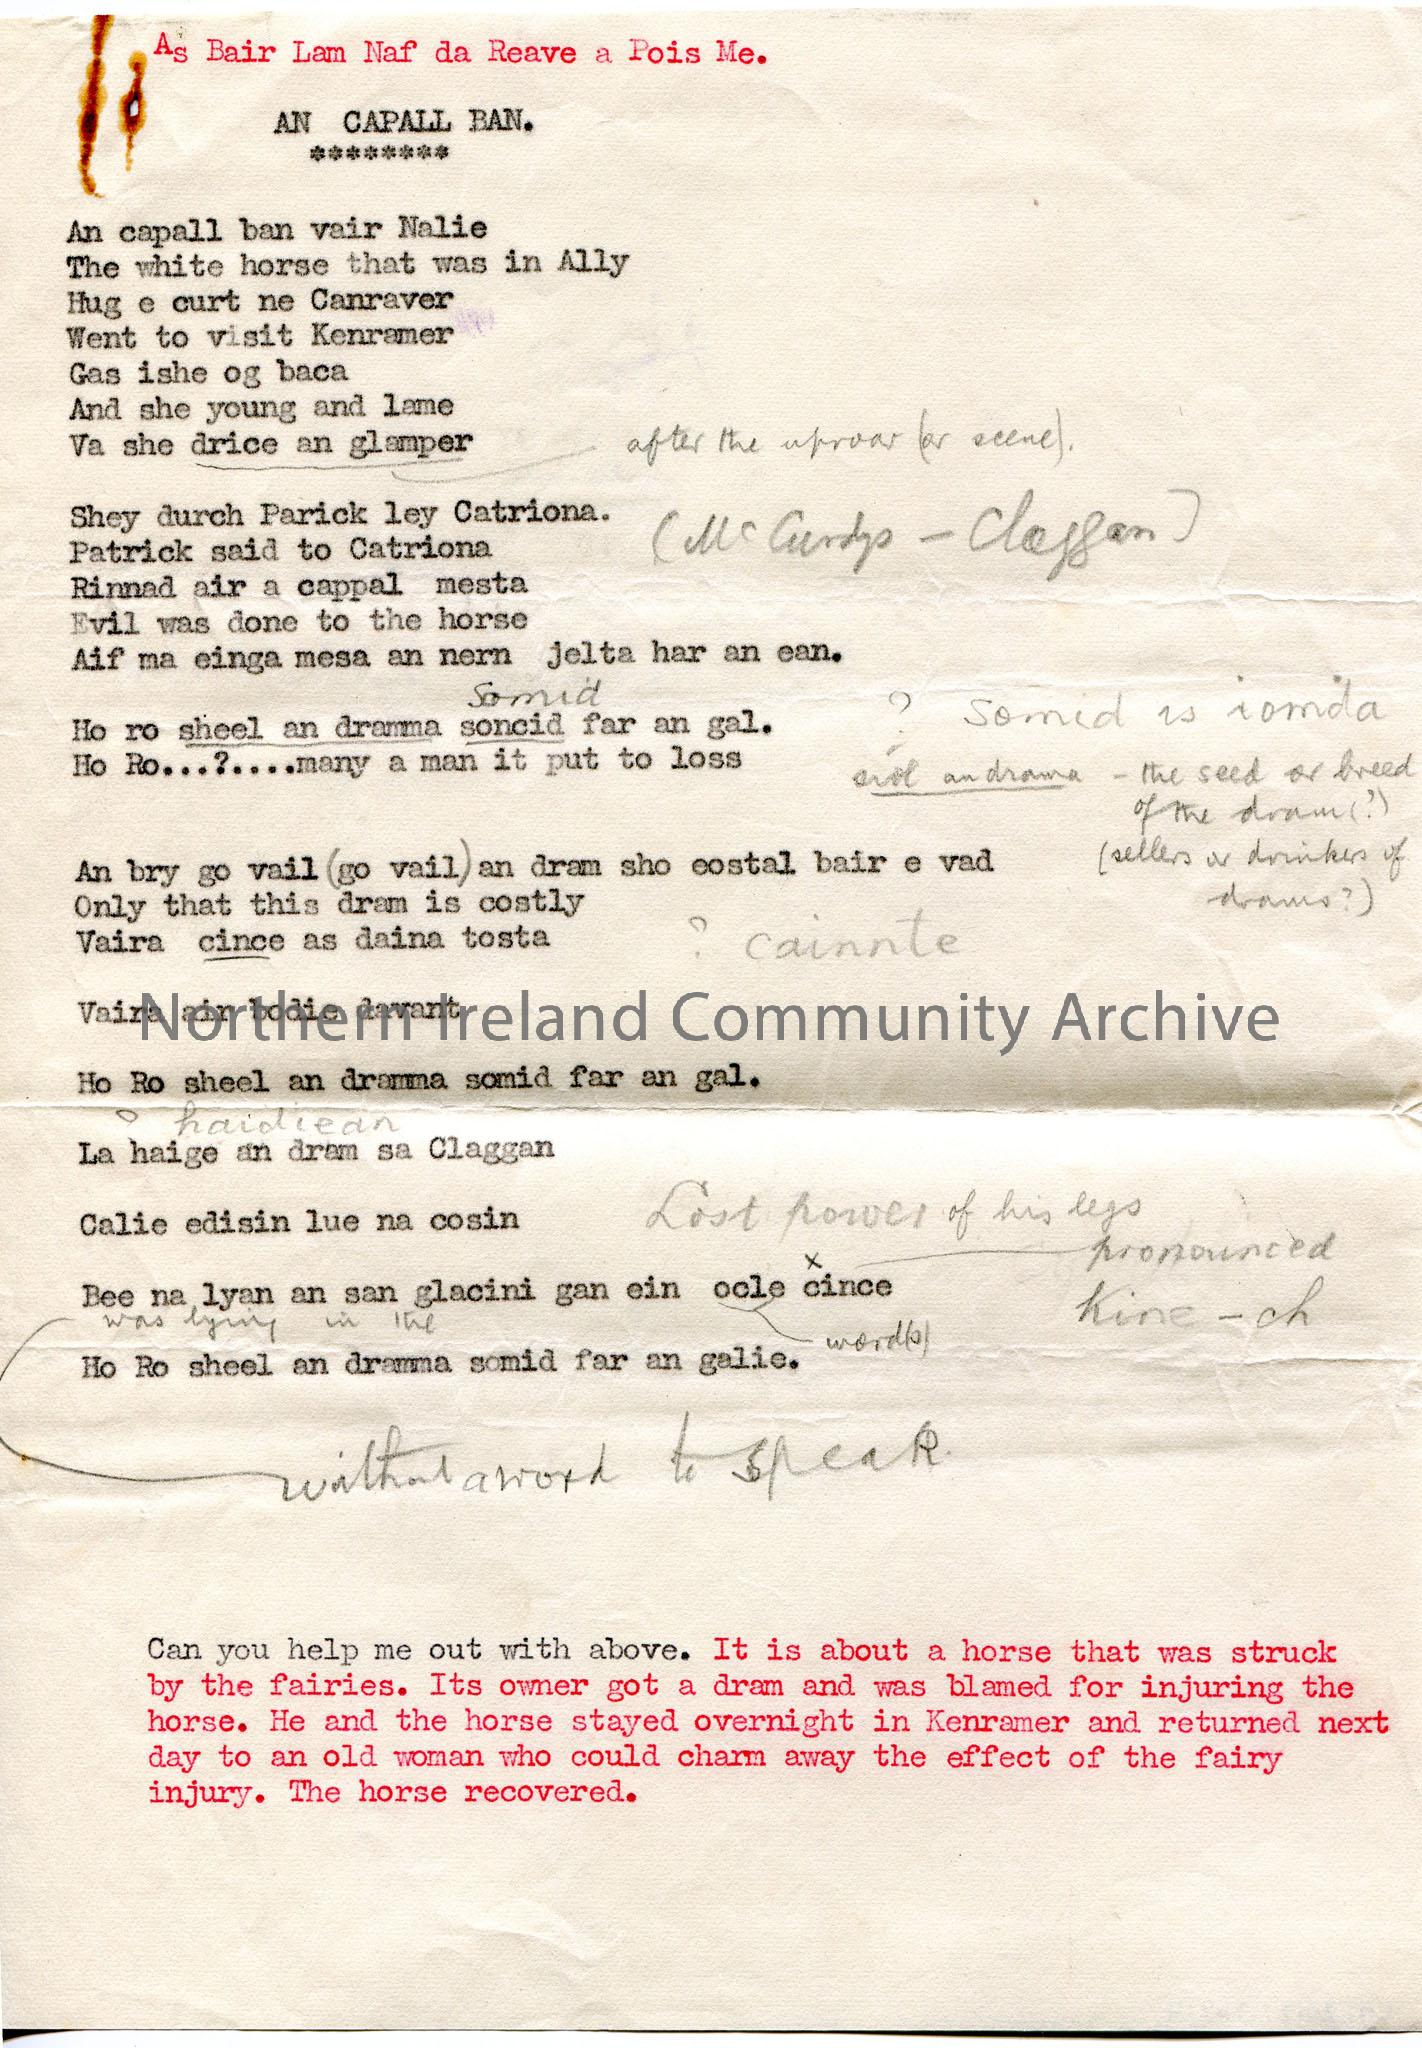 As Bair Lam Naf da Reave a Pois Me.
AN CAPALL BAN.
********
An capall ban vair Nalie
The white horse that was in Ally
Hug e curt ne Canraver
Went to visit Kenramer
Gas ishe og baca
And she young and lame
Va she drice an glamper
after the uproar (or scene).
Shey durch Parick ley Catriona.
(McCurdys - Claggan)
Patrick said to Catriona
Rinnad air a cappal mesta
Evil was done to the horse
Aif ma einga mesa an nern jelta har an ean.
Somid
Ho ro sheel an dramma soncid far an gal.
? Somid is iomda
Ho Ro...?....many a man it put to loss
siol an drama - the seed or breed
of the dram(?)
(sellers or drinkers of
drams?)
An bry go vail (go vail) an dram sho eostal bair e vad
Only that this dram is costly
Vaira cince as daina tosta
? cainnte
Vaira air bodie davant
Northern Ireland Community Archive
Ho Ro sheel an dramma somid far an gal.
? haidiean
La haige an dram sa Claggan
Calie edisin lue na cosin
Lost power of his legs
pronounced
Kine-ch
x
Bee na lyan an san glacini gan ein ocle cince
was lying in the
word(s)
Ho Ro sheel an dramma somid far an galie.
without a word to speak.
Can you help me out with above. It is about a horse that was struck
by the fairies. Its owner got a dram and was blamed for injuring the
horse. He and the horse stayed overnight in Kenramer and returned next
day to an old woman who could charm away the effect of the fairy
injury. The horse recovered.